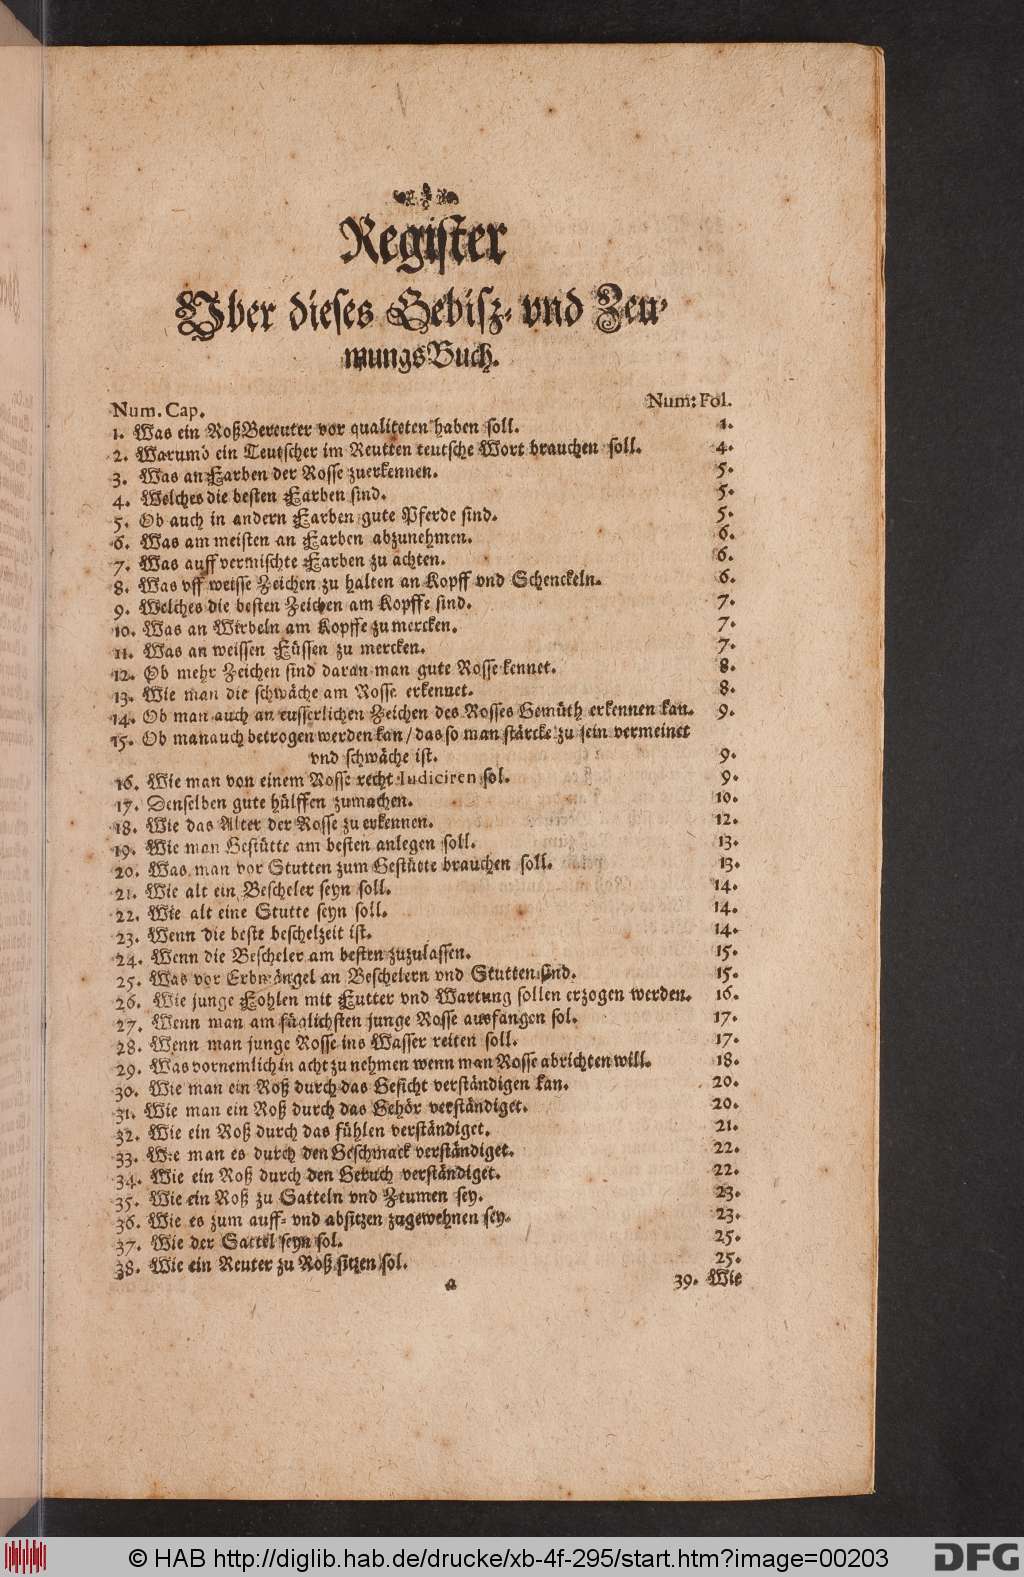 Register
Vber dieses Gebisz- vnd Zeu-
mungs Buch.
Num. Cap. Num: Fol.
1. Was ein Roß Bereuter vor qualiteten haben soll. 1.
2. Warumb ein Teutscher im Reutten teutsche Wort brauchen soll. 4.
3. Was an Farben der Rosse zuerkennen. 5.
4. Welches die besten Farben sind. 5.
5. Ob auch in andern Farben gute Pferde sind. 5.
6. Was am meisten an Farben abzunehmen. 6.
7. Was auff vermischte Farben zu achten. 6.
8. Was vff weisse Zeichen zu halten an Kopff vnd Schenckeln. 6.
9. Welches die besten Zeichen am Kopffe sind. 7.
10. Was an Wirbeln am Kopffe zu mercken. 7.
11. Was an weissen Füssen zu mercken. 7.
12. Ob mehr Zeichen sind daran man gute Rosse kennet. 8.
13. Wie man die schwäche am Rosse erkennet. 8.
14. Ob man auch an eusserlichen Zeichen des Rosses Gemüth erkennen kan. 9.
15. Ob man auch betrogen werden kan / das so man stärcke zu sein vermeinet
vnd schwäche ist. 9.
16. Wie man von einem Rosse recht Iudiciren sol. 9.
17. Denselben gute hülffen zumachen. 10.
18. Wie das Alter der Rosse zu erkennen. 12.
19. Wie man Gestütte am besten anlegen soll. 13.
20. Was man vor Stutten zum Gestütte brauchen soll. 13.
21. Wie alt ein Bescheler seyn soll. 14.
22. Wie alt eine Stutte seyn soll. 14.
23. Wenn die beste beschelzeit ist. 14.
24. Wenn die Bescheler am besten zuzulassen. 15.
25. Was vor Erbmängel an Beschelern vnd Stutten sind. 15.
26. Wie junge Fohlen mit Futter vnd Wartung sollen erzogen werden. 16.
27. Wenn man am füglichsten junge Rosse ausfangen sol. 17.
28. Wenn man junge Rosse ins Wasser reiten soll. 17.
29. Was vornemlich in acht zu nehmen wenn man Rosse abrichten will. 18.
30. Wie man ein Roß durch das Gesicht verständigen kan. 20.
31. Wie man ein Roß durch das Gehör verständiget. 20.
32. Wie ein Roß durch das fühlen verständiget. 21.
33. Wie man es durch den Geschmack verständiget. 22.
34. Wie ein Roß durch den Geruch verständiget. 22.
35. Wie ein Roß zu Satteln vnd Zeumen sey. 23.
36. Wie es zum auff- vnd absitzen zugewehnen sey. 23.
37. Wie der Sattel seyn sol. 25.
38. Wie ein Reuter zu Roß sitzen sol. 25.
a 39. Wie
© HAB http://diglib.hab.de/drucke/xb-4f-295/start.htm?image=00203 DFG